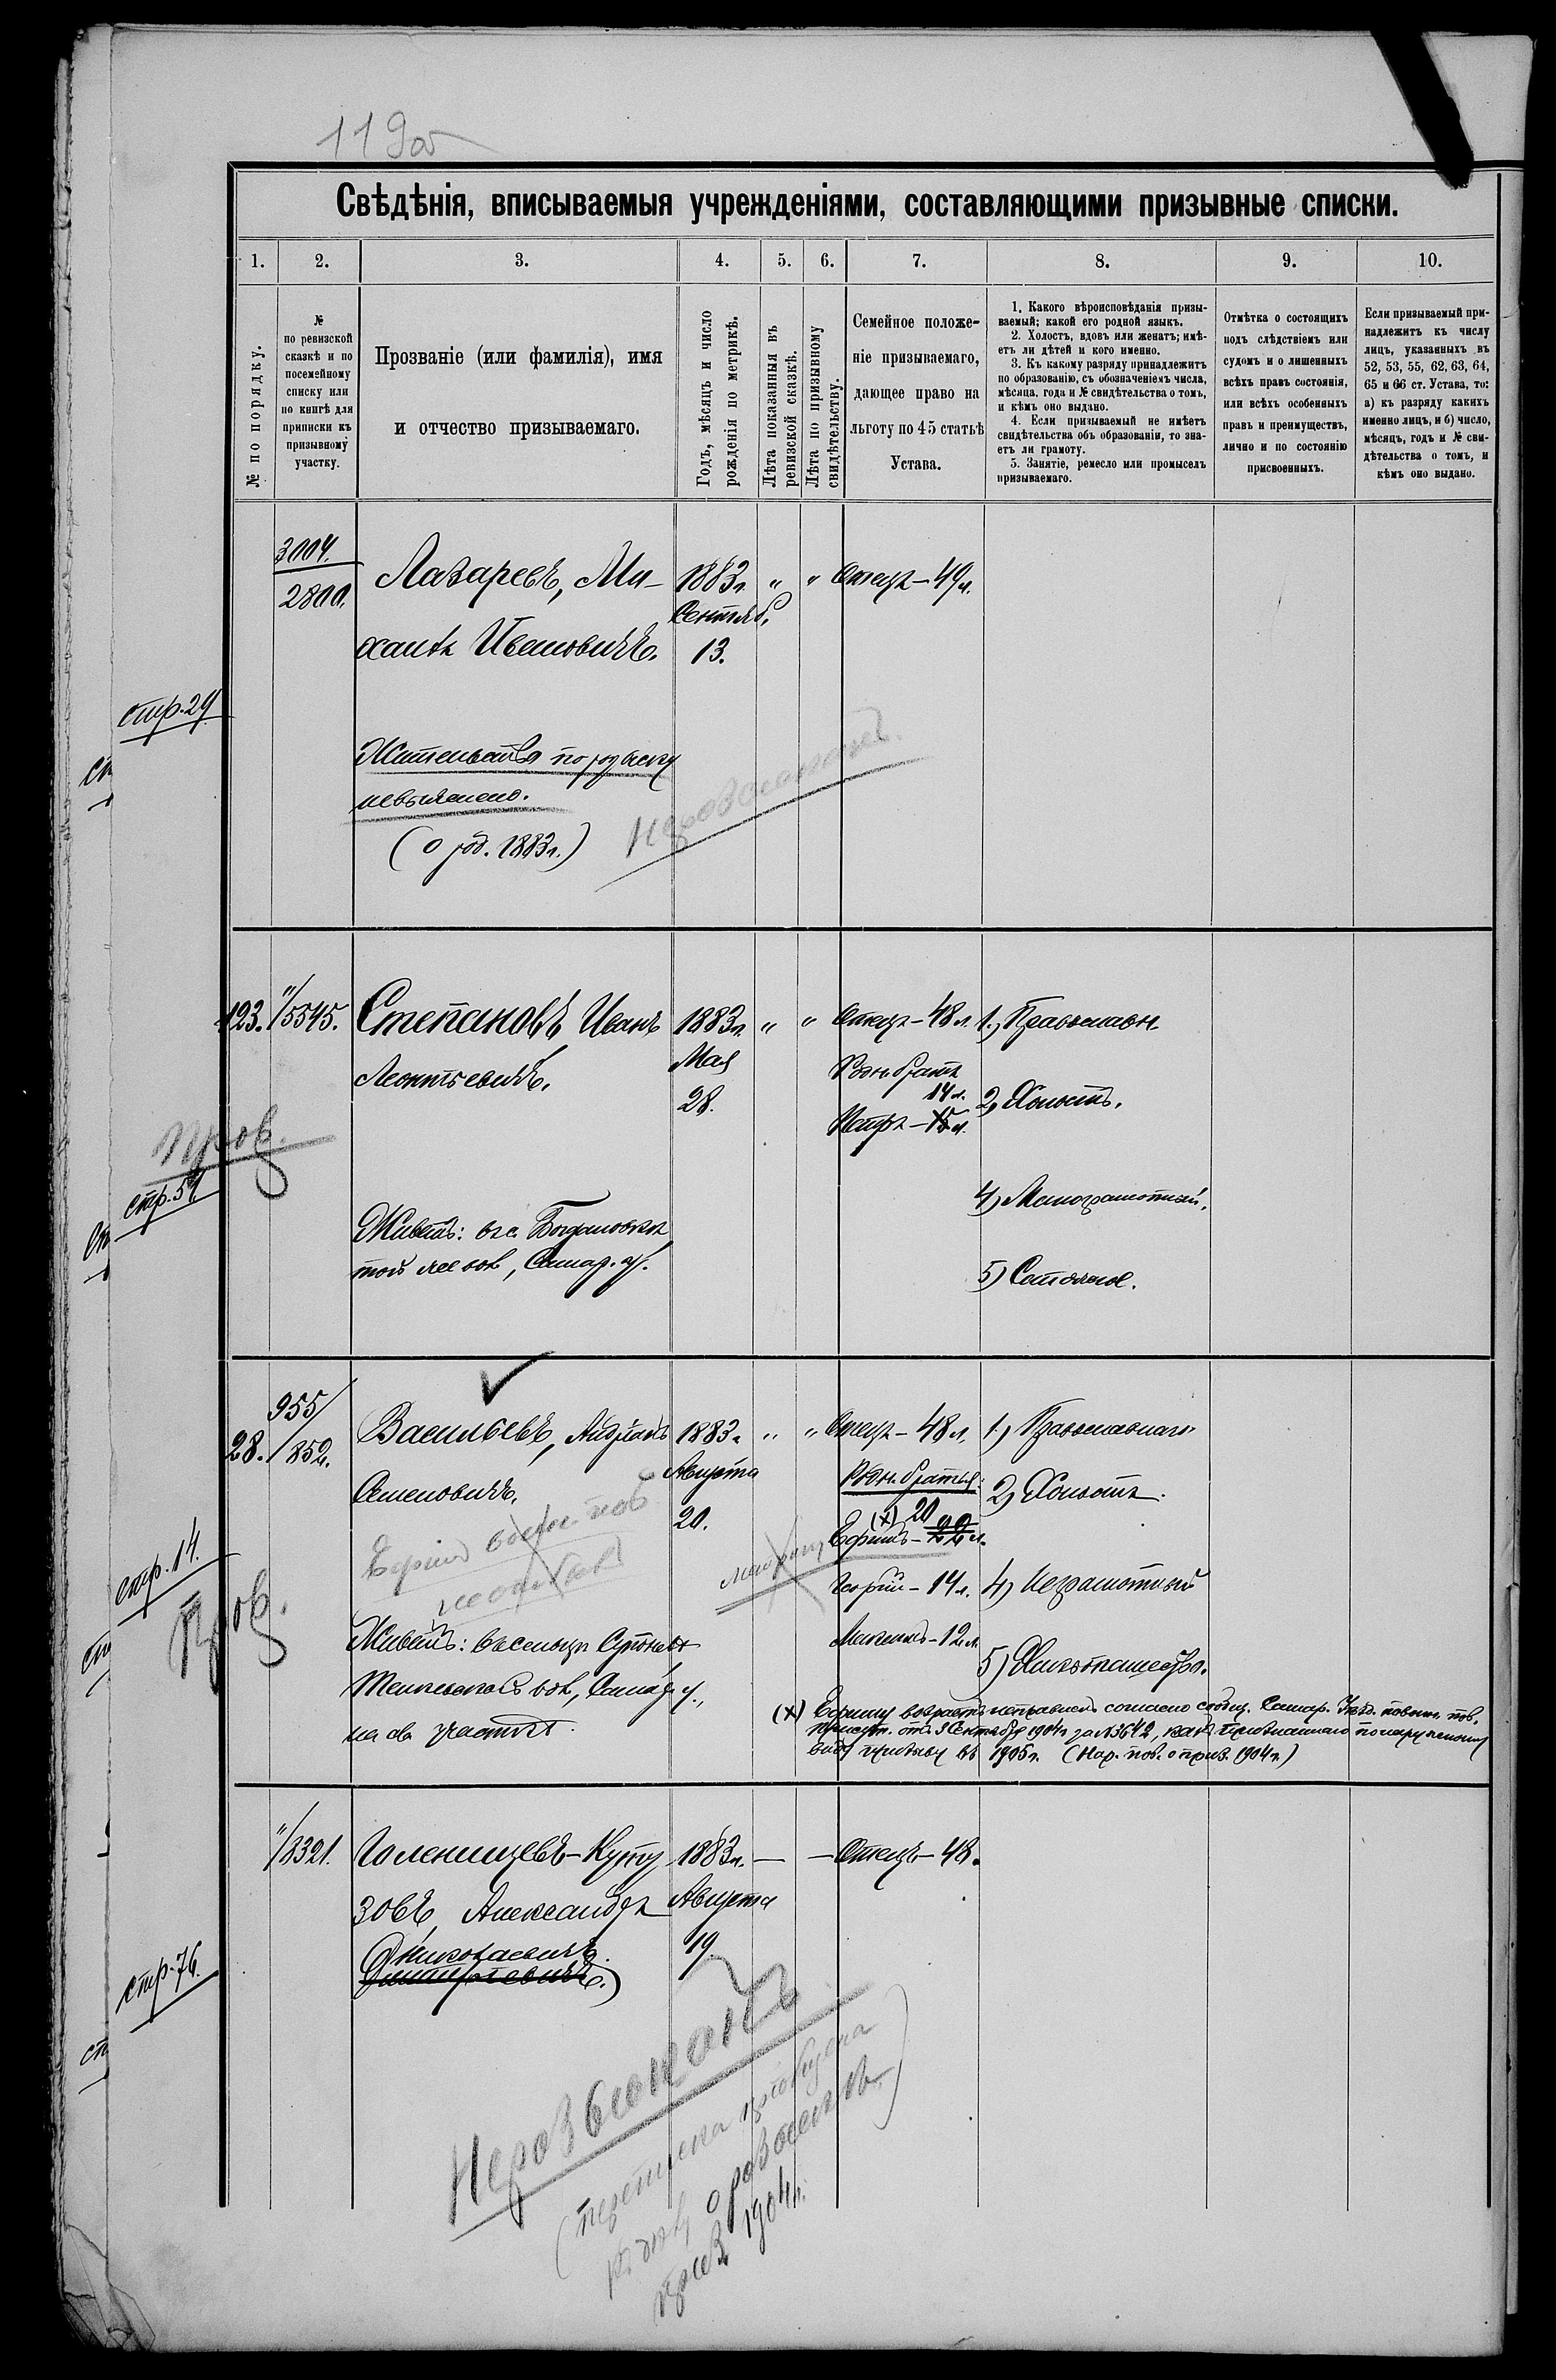 119об
Свѣдѣнія, вписываемыя учрежденіями, составляющими призывные списки.
1. 2. 3. 4. 5. 6. 7. 8. 9. 10.
№ по порядку.
№
по ревизской
сказкѣ и по
посемейному
списку или
по книгѣ для
приписки къ
призывному
участку.
Прозваніе (или фамилія), имя
и отчество призываемаго.
Годъ, мѣсяцъ и число
рожденія по метрикѣ.
Лѣта показанныя въ
ревизской сказкѣ.
Лѣта по призывному
свидѣтельству.
Семейное положе-
ніе призываемаго,
дающее право на
льготу по 45 статьѣ
Устава.
1. Какого вѣроисповѣданія призы-
ваемый; какой его родной языкъ.
2. Холостъ, вдовъ или женатъ; имѣ-
етъ ли дѣтей и кого именно.
3. Къ какому разряду принадлежитъ
по образованію, съ обозначеніемъ числа,
мѣсяца, года и № свидѣтельства о томъ,
и кѣмъ оно выдано.
4. Если призываемый не имѣетъ
свидѣтельства объ образованіи, то зна-
етъ ли грамоту.
5. Занятіе, ремесло или промыселъ
призываемаго.
Отмѣтка о состоящихъ
подъ слѣдствіемъ или
судомъ и о лишенныхъ
всѣхъ правъ состоянія,
или всѣхъ особенныхъ
правъ и преимуществъ,
лично и по состоянію
присвоенныхъ.
Если призываемый при-
надлежитъ къ числу
лицъ, указанныхъ въ
52, 53, 55, 62, 63, 64,
65 и 66 ст. Устава, то:
а) къ разряду какихъ
именно лицъ, и б) число,
мѣсяцъ, годъ и № сви-
дѣтельства о томъ, и
кѣмъ оно выдано.
3004.
2800.
Лазаревъ, Ми-
хаилъ Ивановичъ.
1883г.
Сентяб.
13.
" " Отецъ – 49л.
стр. 29
Жительство по розыску
невыяснено.
(о род. 1883г.)
Неразысканъ.
123. "/5545. Степановъ Иванъ
Леонтьевичъ.
1883г.
Мая
28.
" " Отецъ – 48 л.
Родн. братъ
14 л.
Петръ – 15 л.
1.) Православн.
2) Холостъ.
4) Малограмотный.
5) Столяръ.
Пров.
стр. 57
Живетъ: въ с. Богдановкѣ
той же вол., Самар. у.
28. 955/852. Васильевъ, Андрей
Семеновичъ.
1883г.
Августа
20.
" " Отецъ – 48 л.
Родн. братья:
(х) 20
Ефимъ – 22 л.
Георгій – 14 л.
12 л.
1.) Православнаго
2) Холостъ.
4) Неграмотный
5) Хлѣбопашество.
стр. 14.
Пров.
Живетъ:
вол., Самар. у.,
на св. участкѣ.
(х) Ефиму возрастъ исправленъ согласно сообщ. Самар. Уѣзд. повин.
присут. отъ 3 Сентября 1904г. за №3642, какъ признаннаго по наружному
виду призыву въ 1905г. (Нар. пов. о приз. 1904г.)
"/8321. Голенищевъ-Куту
зовъ, Александръ
Николаевичъ
(Дмитріевичъ.)
1883г.
Августа
19.
— — Отецъ – 48.
стр. 76.
Неразысканъ
(переписка пріобщена
къ дѣлу о розыскѣ
приз. 1904г.)